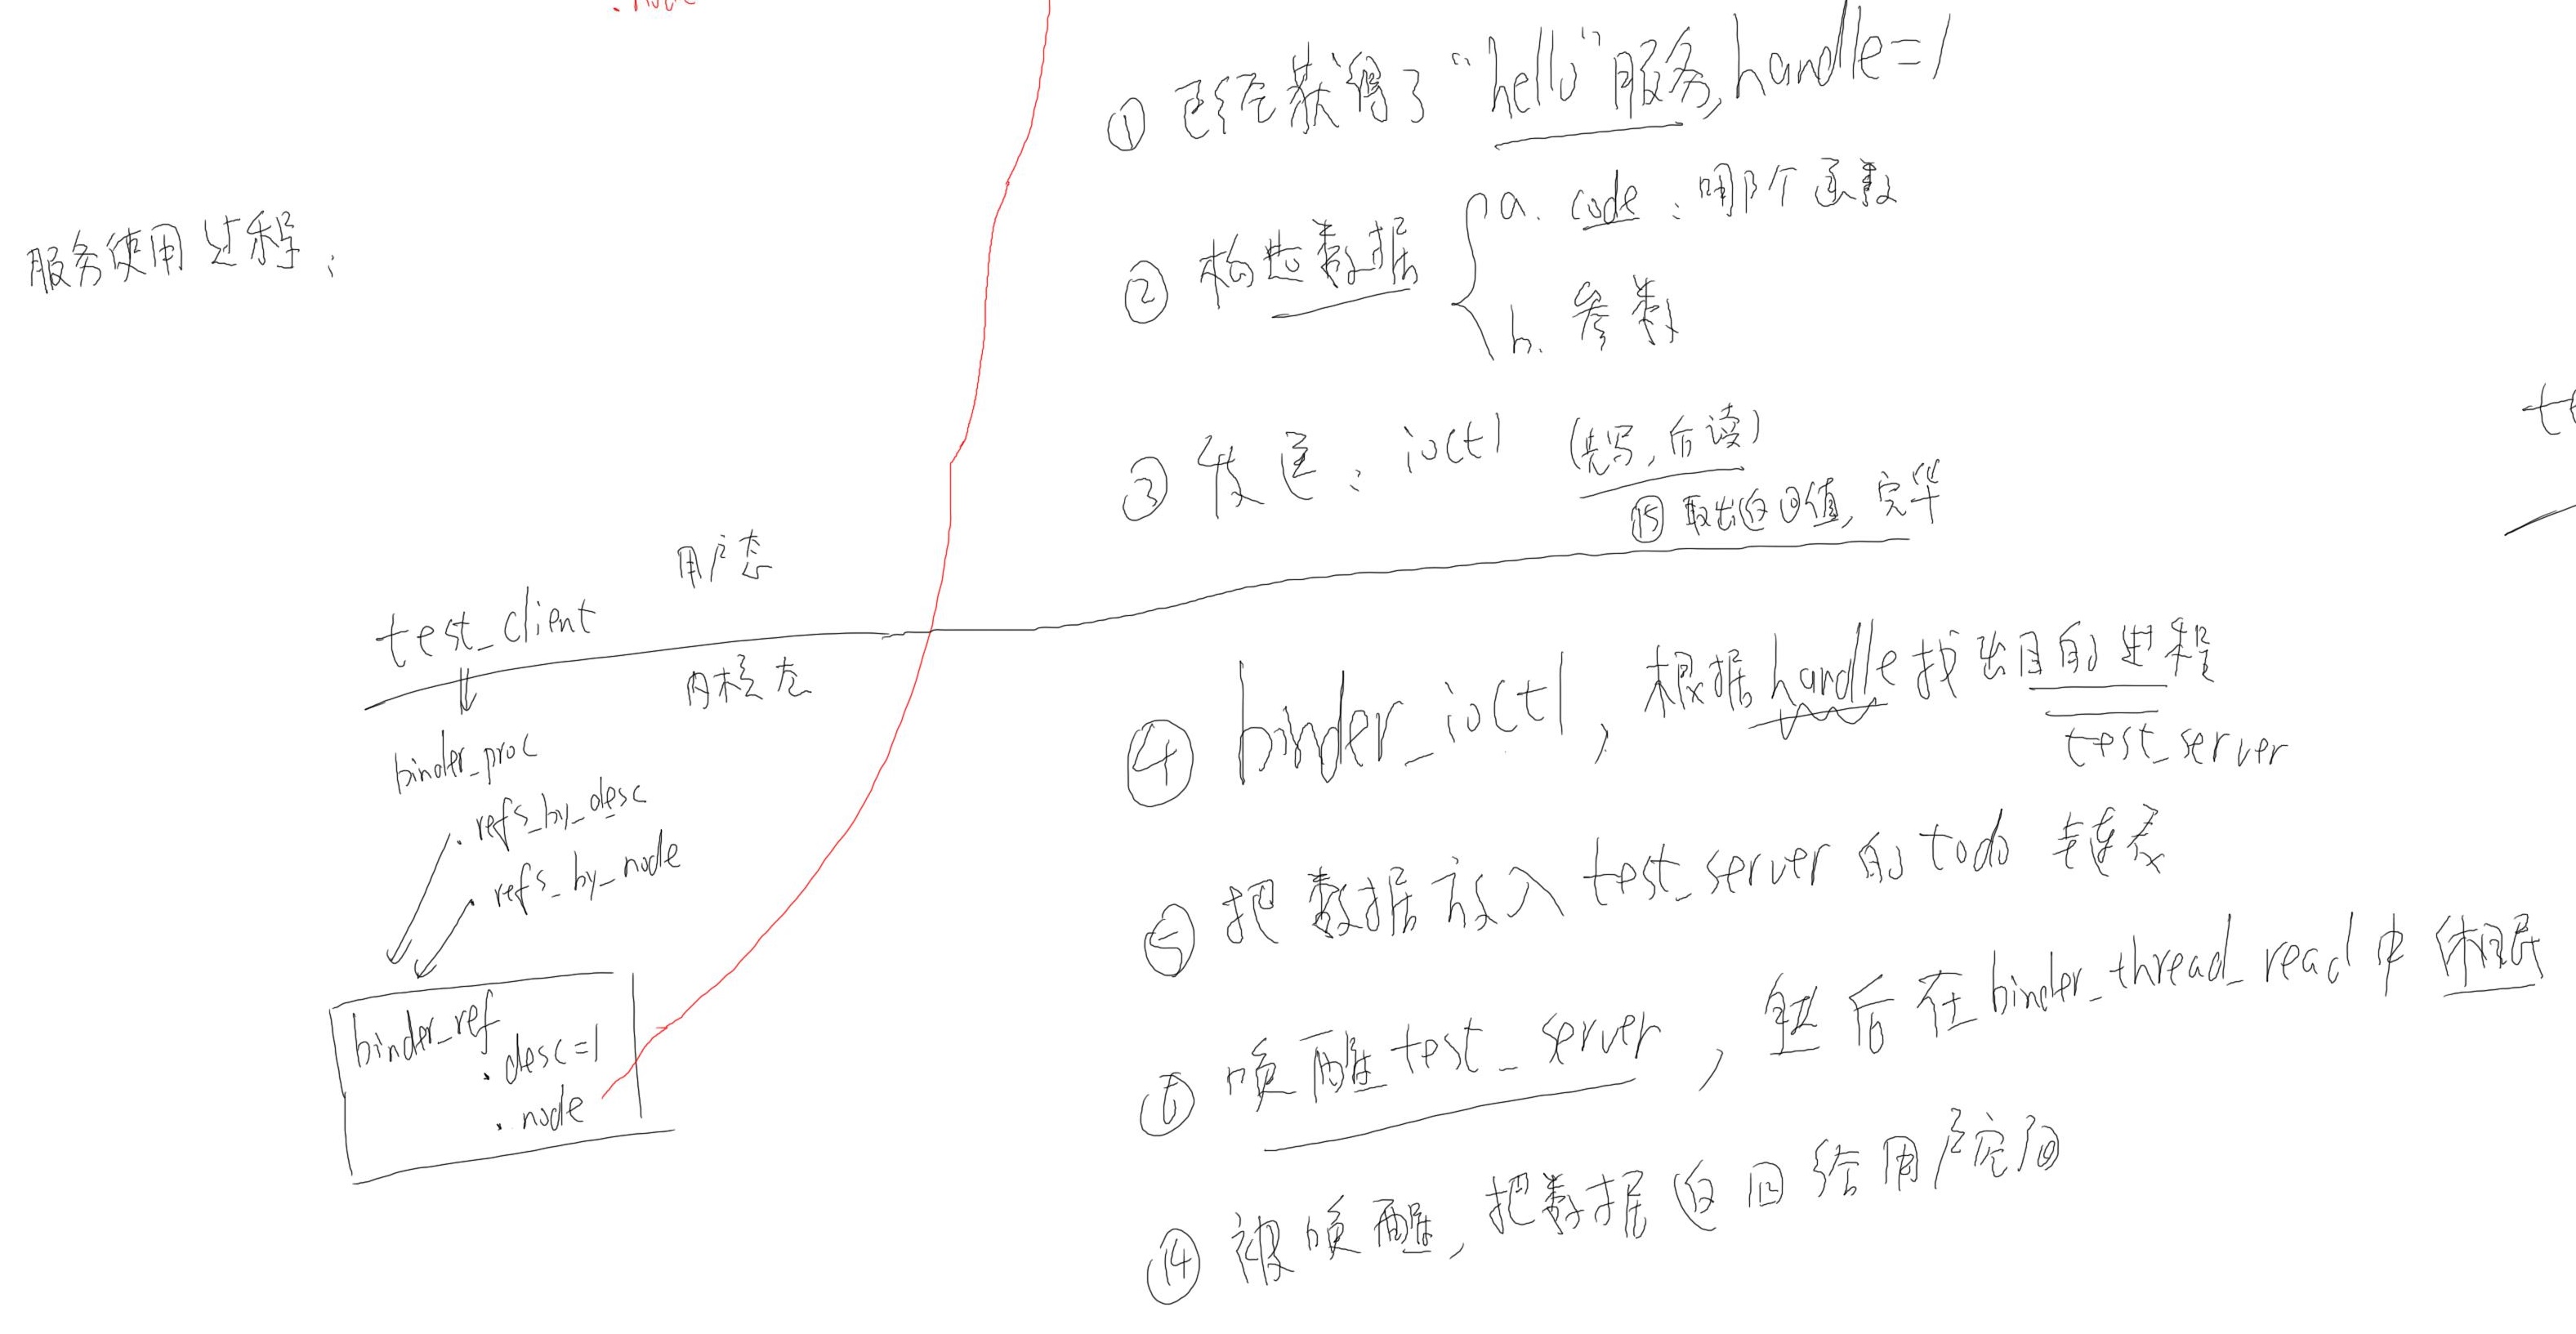 服务使用过程:
① 已经获得了“hello”服务, handle=1
② 构造数据
a. code: 哪个函数
b. 参数
③ 发送: ioctl (先写, 后读)
⑮ 取出返回值, 完毕
用户态
test_client
内核态
binder_proc
. refs_by_desc
. refs_by_node
binder_ref
. desc=1
. node
④ binder_ioctl, 根据handle找出目的进程
test_server
⑤ 把数据放入test_server的todo链表
⑥ 唤醒test_server, 然后在binder_thread_read中休眠
⑭ 被唤醒, 把数据返回给用户空间